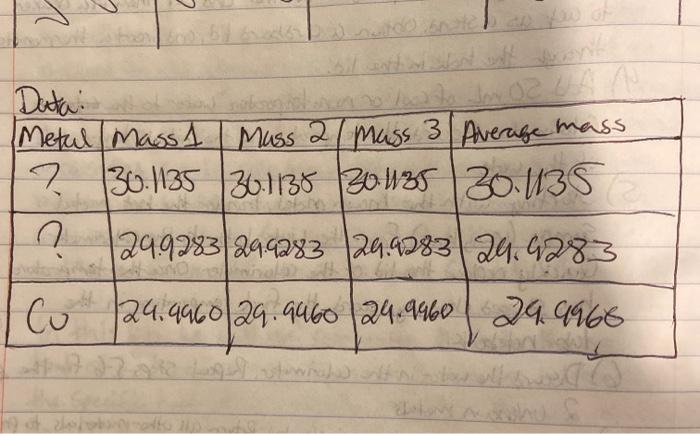 Data:
Metal Mass 1 Mass 2 Mass 3 Average mass
? 30.1135 30.1135 30.1135 30.1135
? 29.9283 29.9283 29.9283 29.9283
Cu 29.9960 29.9960 29.9960 29.9960